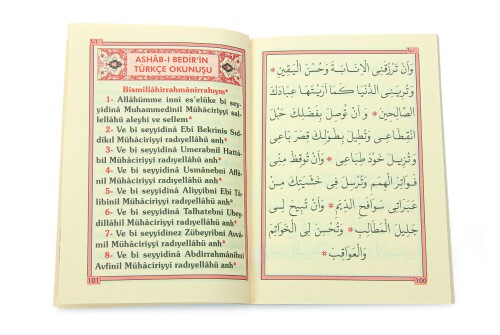 ASHÂB-I BEDİR'İN
TÜRKÇE OKUNUŞU
Bismillâhirrahmânirrahıym*
1- Allâhümme inni es'elüke bi sey-
yidinâ Muhammedinil Mühâciriyyi sal-
lellâhü aleyhi ve sellem*
2- Ve bi seyyidinâ Ebî Bekrinis Sıd-
dîkıl Mühâciriyyi radıyellâhü anh*
3- Ve bi seyyidinâ Umerabnil Hattâ-
bil Mühâciriyyi radıyellâhü anh*
4- Ve bi seyyidinâ Usmânebni Affâ-
nil Mühâciriyyi radıyellâhü anh*
5- Ve bi seyyidinâ Aliyyibni Ebî Tâ-
libinil Mühâciriyyi radıyellâhü anh*
6- Ve bi seyyidinâ Talhatebni Ubey-
dillâhil Mühâciriyyi radıyellâhü anh*
7- Ve bi seyyidinez Zübeyribni Avvâ-
mil Mühâciriyyi radıyellâhü anh*
8- Ve bi seyyidinâ Abdirrahmânibni
Avfinil Mühâciriyyi radıyellâhü anh*
101
وَاَنْ تَرْزُقَنِى الْاِنَابَةَ وَحُسْنَ الْيَقِينِ *
وَتُرِيَنِى الدُّنْيَا كَمَا اَرَيْتَهَا عِبَادَكَ
الصَّالِحِينَ * وَ اَنْ تُوصِلَ بِفَضْلِكَ حَبْلَ
انْقِطَاعِى وَتُطِيلَ بِطَوْلِكَ قِصَرَ بَاعِى
وَتُزِيلَ خَوْدَ طِبَاعِى * وَاَنْ تُوقِظَ مِنِّى
فَوَاتِرَ الْهِمَمِ وَتُرْسِلَ فِى خَشْيَتِكَ مِنْ
عَبَرَاتِى سَوَافِحَ الدِّيَمِ * وَاَنْ تُبِيحَ لِى
جَلِيلَ الْمَطَالِبِ * وَتُحْسِنَ لِىَ الْخَوَاتِمَ
وَالْعَوَاقِبَ *
100